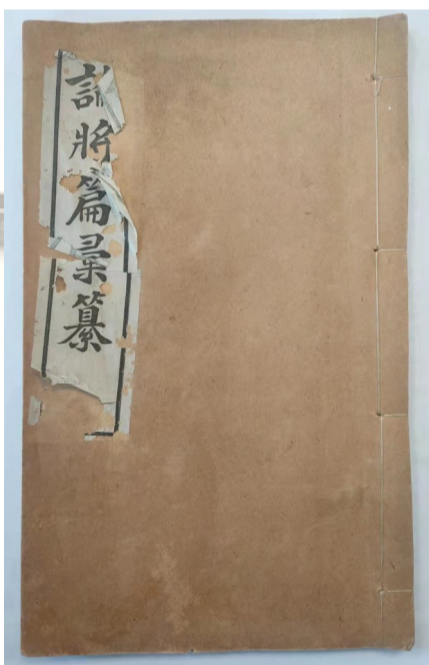 將篇彙纂